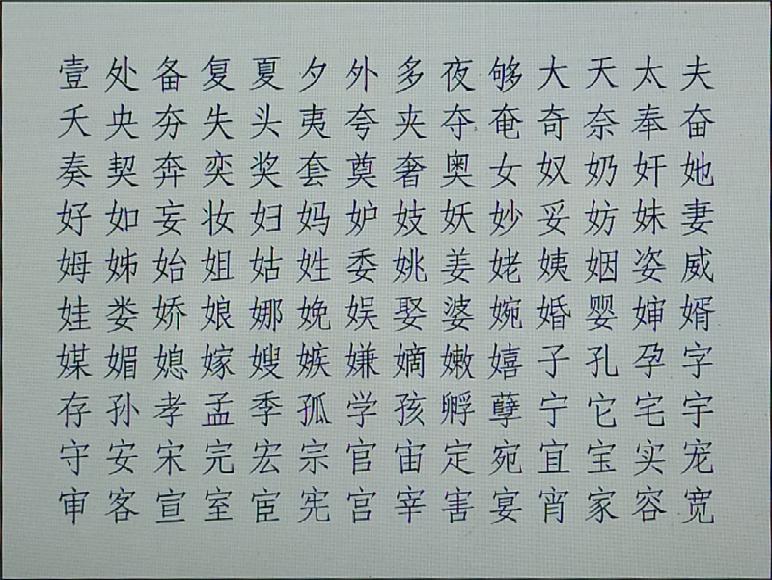 壹处备复夏夕外多夜够大天太夫
夭央夯失头夷夸夹夺奄奇奈奉奋
奏契奔奕奖套奠奢奥女奴奶奸她
好如妄妆妇妈妒妓妖妙妥妨妹妻
姆姊始姐姑姓委姚姜姥姨姻姿威
娃娄娇娘娜娩娱娶婆婉婚婴婶婿
媒媚媳嫁嫂嫉嫌嫡嫩嬉子孔孕字
存孙孝孟季孤学孩孵孽宁它宅宇
守安宋完宏宗官宙定宛宜宝实宠
审客宣室宦宪宫宰害宴宵家容宽